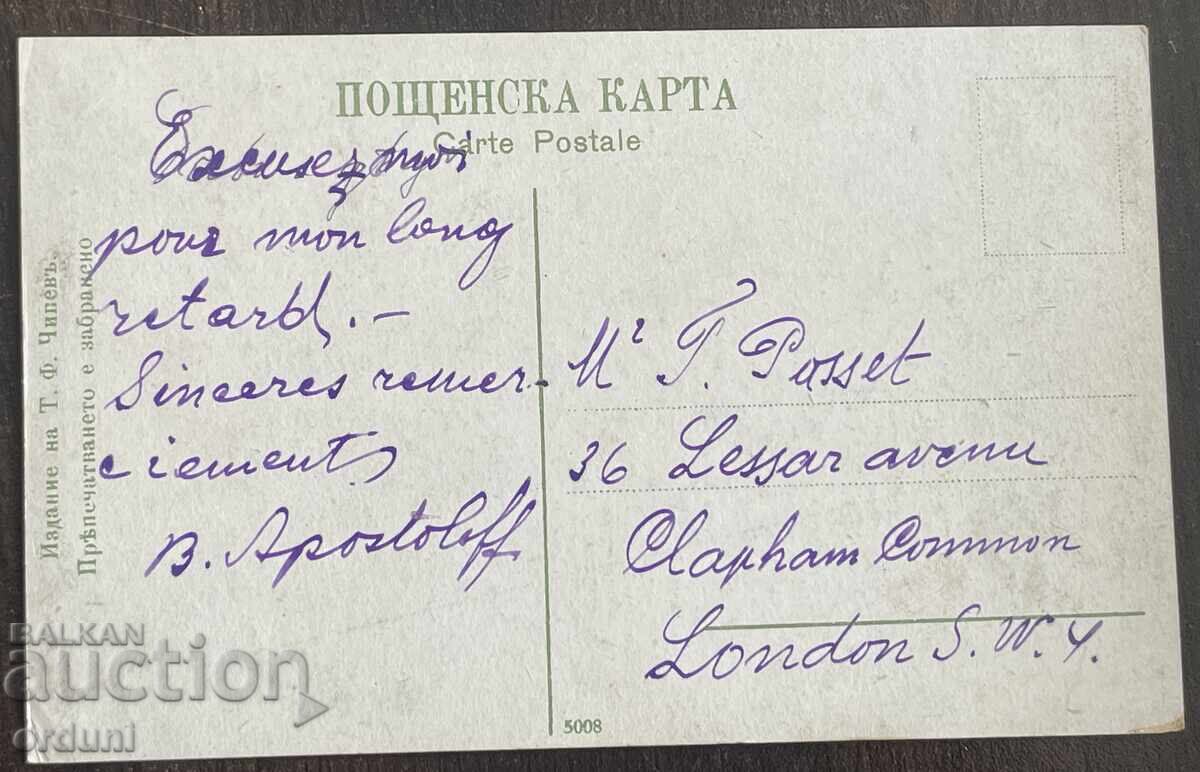 ПОЩЕНСКА КАРТА
Carte Postale
Excusez moi
pour mon long
retard. —
Sinceres remer-
ciements
B. Apostoloff
Mr F. Posset
36 Lessar avenu
Clapham Common
London S. W. 4.
Издание на Т. Ф. Чипевъ.
Прѣпечатването е забранено
5008
BALKAN
auction
orduni